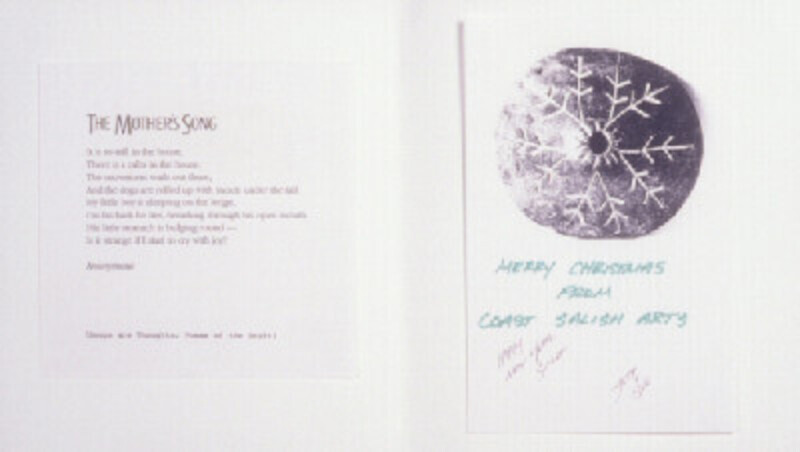 THE MOTHER'S SONG
It is so still in the house,
There is a calm in the house;
The snowstorm wails out there,
And the dogs are rolled up with snouts under the tail.
My little boy is sleeping on the ledge,
On his back he lies, breathing through his open mouth.
His little stomach is bulging round —
Is it strange if I start to cry with joy?
Anonymous
MERRY CHRISTMAS
FROM
COAST SALISH ARTS